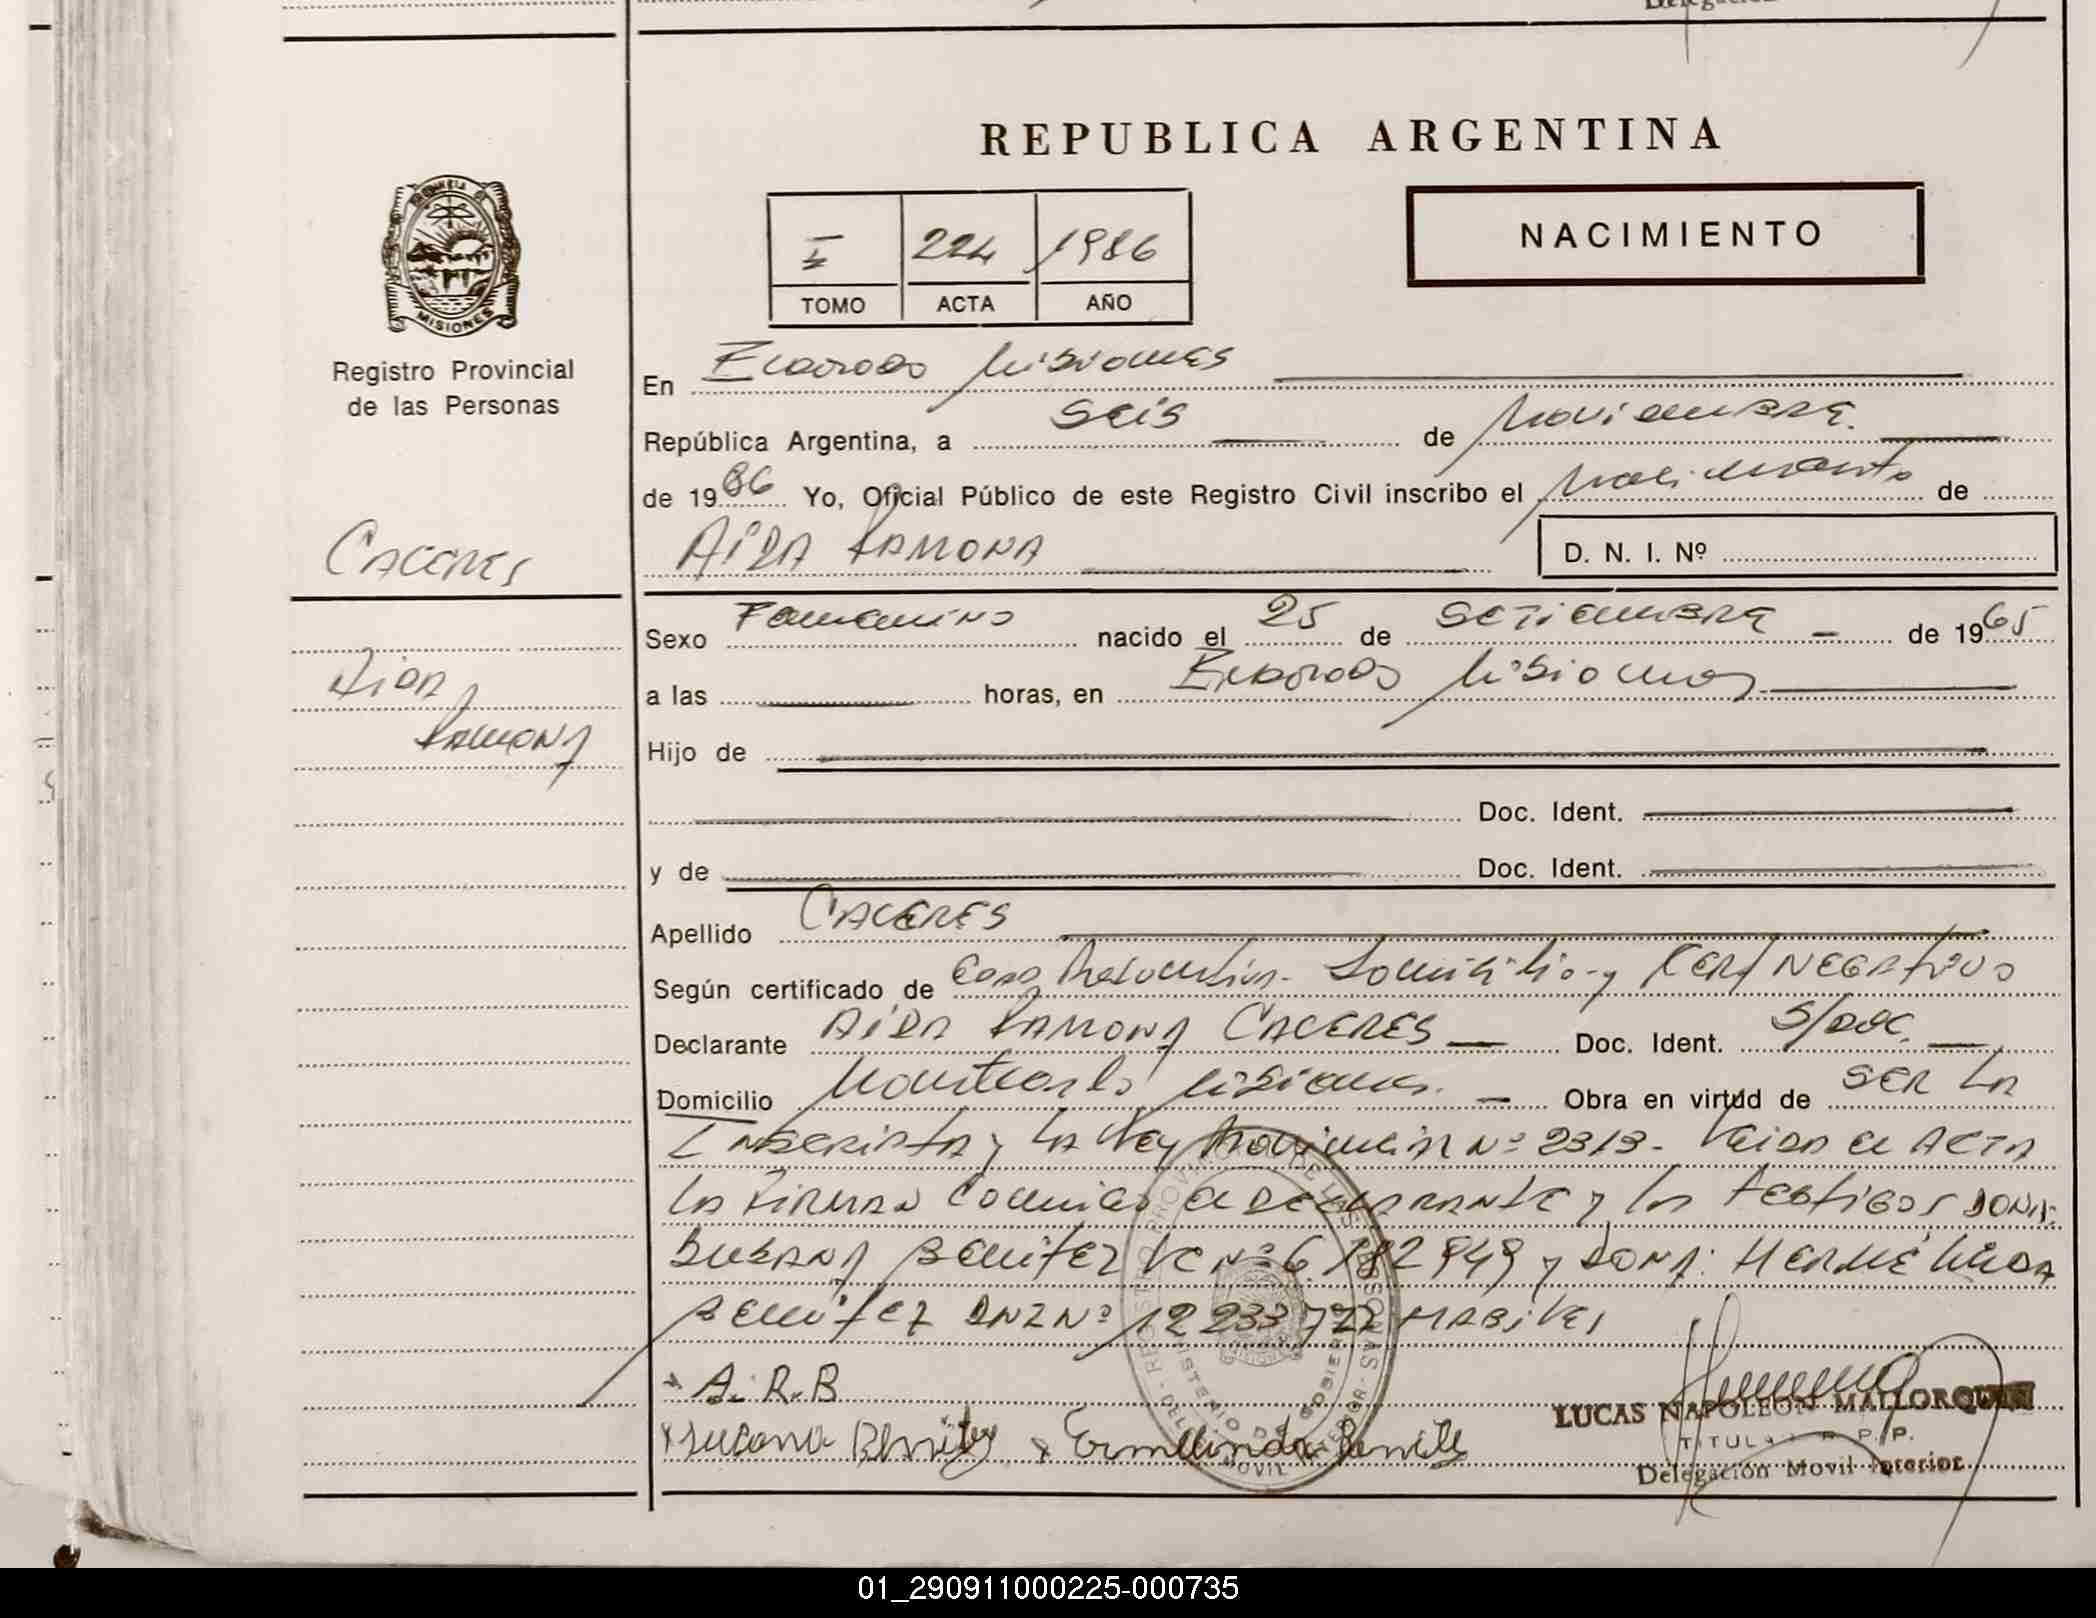 REPUBLICA ARGENTINA
NACIMIENTO
I 224 1986
TOMO ACTA AÑO
MISIONES
Registro Provincial
de las Personas
CACERES
Aida
Ramona
En Eldorado Misiones
República Argentina, a seis de Noviembre
de 1986 Yo, Oficial Público de este Registro Civil inscribo el Nacimiento de
AIDA RAMONA D. N. I. Nº
Sexo Femenino nacido el 25 de SETIEMBRE de 1965
a las horas, en Eldorado Misiones
Hijo de
Doc. Ident.
y de Doc. Ident.
Apellido CACERES
Según certificado de Edad Domicilio y CERT NEGATIVO
Declarante AIDA RAMONA CACERES Doc. Ident. S/DOC.
Domicilio Montecarlo Misiones. Obra en virtud de SER LA
Inscripta y LA Ley Provincial Nº 2313 - Leida el ACTA
LA FIRMAN Conmigo el DECLARANTE y los TESTIGOS DOÑA:
SUSANA Benitez LC Nº 6.182949 y DOÑA: HERMELINDA
Benitez DNI Nº 12233722 HABILES
A. R. B
Susana Benitez x Ermelinda Benitez
LUCAS NAPOLEON MALLORQUIN
TITULAR R. P. P.
Delegación Movil Interior
REGISTRO PROVINCIAL DE LAS PERSONAS
MINISTERIO DE GOBIERNO
01_290911000225-000735